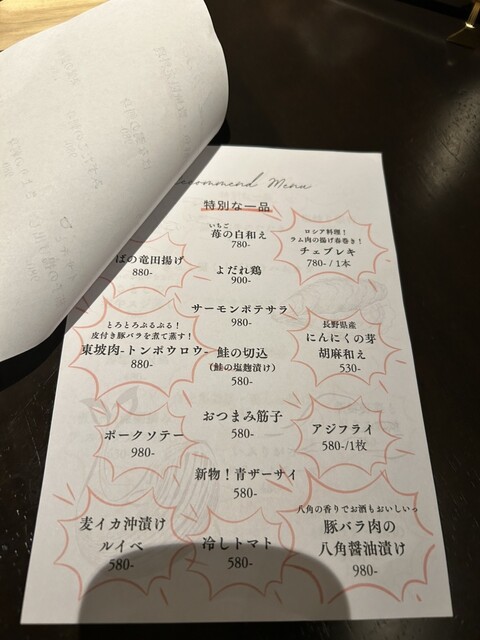 Recommend Menu
特別な一品
いちご
苺の白和え
780-
ロシア料理！
ラム肉の揚げ春巻き！
チェブレキ
780- / 1本
ばの竜田揚げ
880-
よだれ鶏
900-
サーモンポテサラ
980-
とろとろぷるぷる！
皮付き豚バラを煮て蒸す！
東坡肉-トンポウロウ-
880-
鮭の切込
(鮭の塩麹漬け)
580-
長野県産
にんにくの芽
胡麻和え
530-
おつまみ筋子
580-
ポークソテー
980-
アジフライ
580-/1枚
新物！青ザーサイ
580-
麦イカ沖漬け
ルイベ
580-
冷しトマト
580-
八角の香りでお酒もおいしいっ
豚バラ肉の
八角醤油漬け
980-